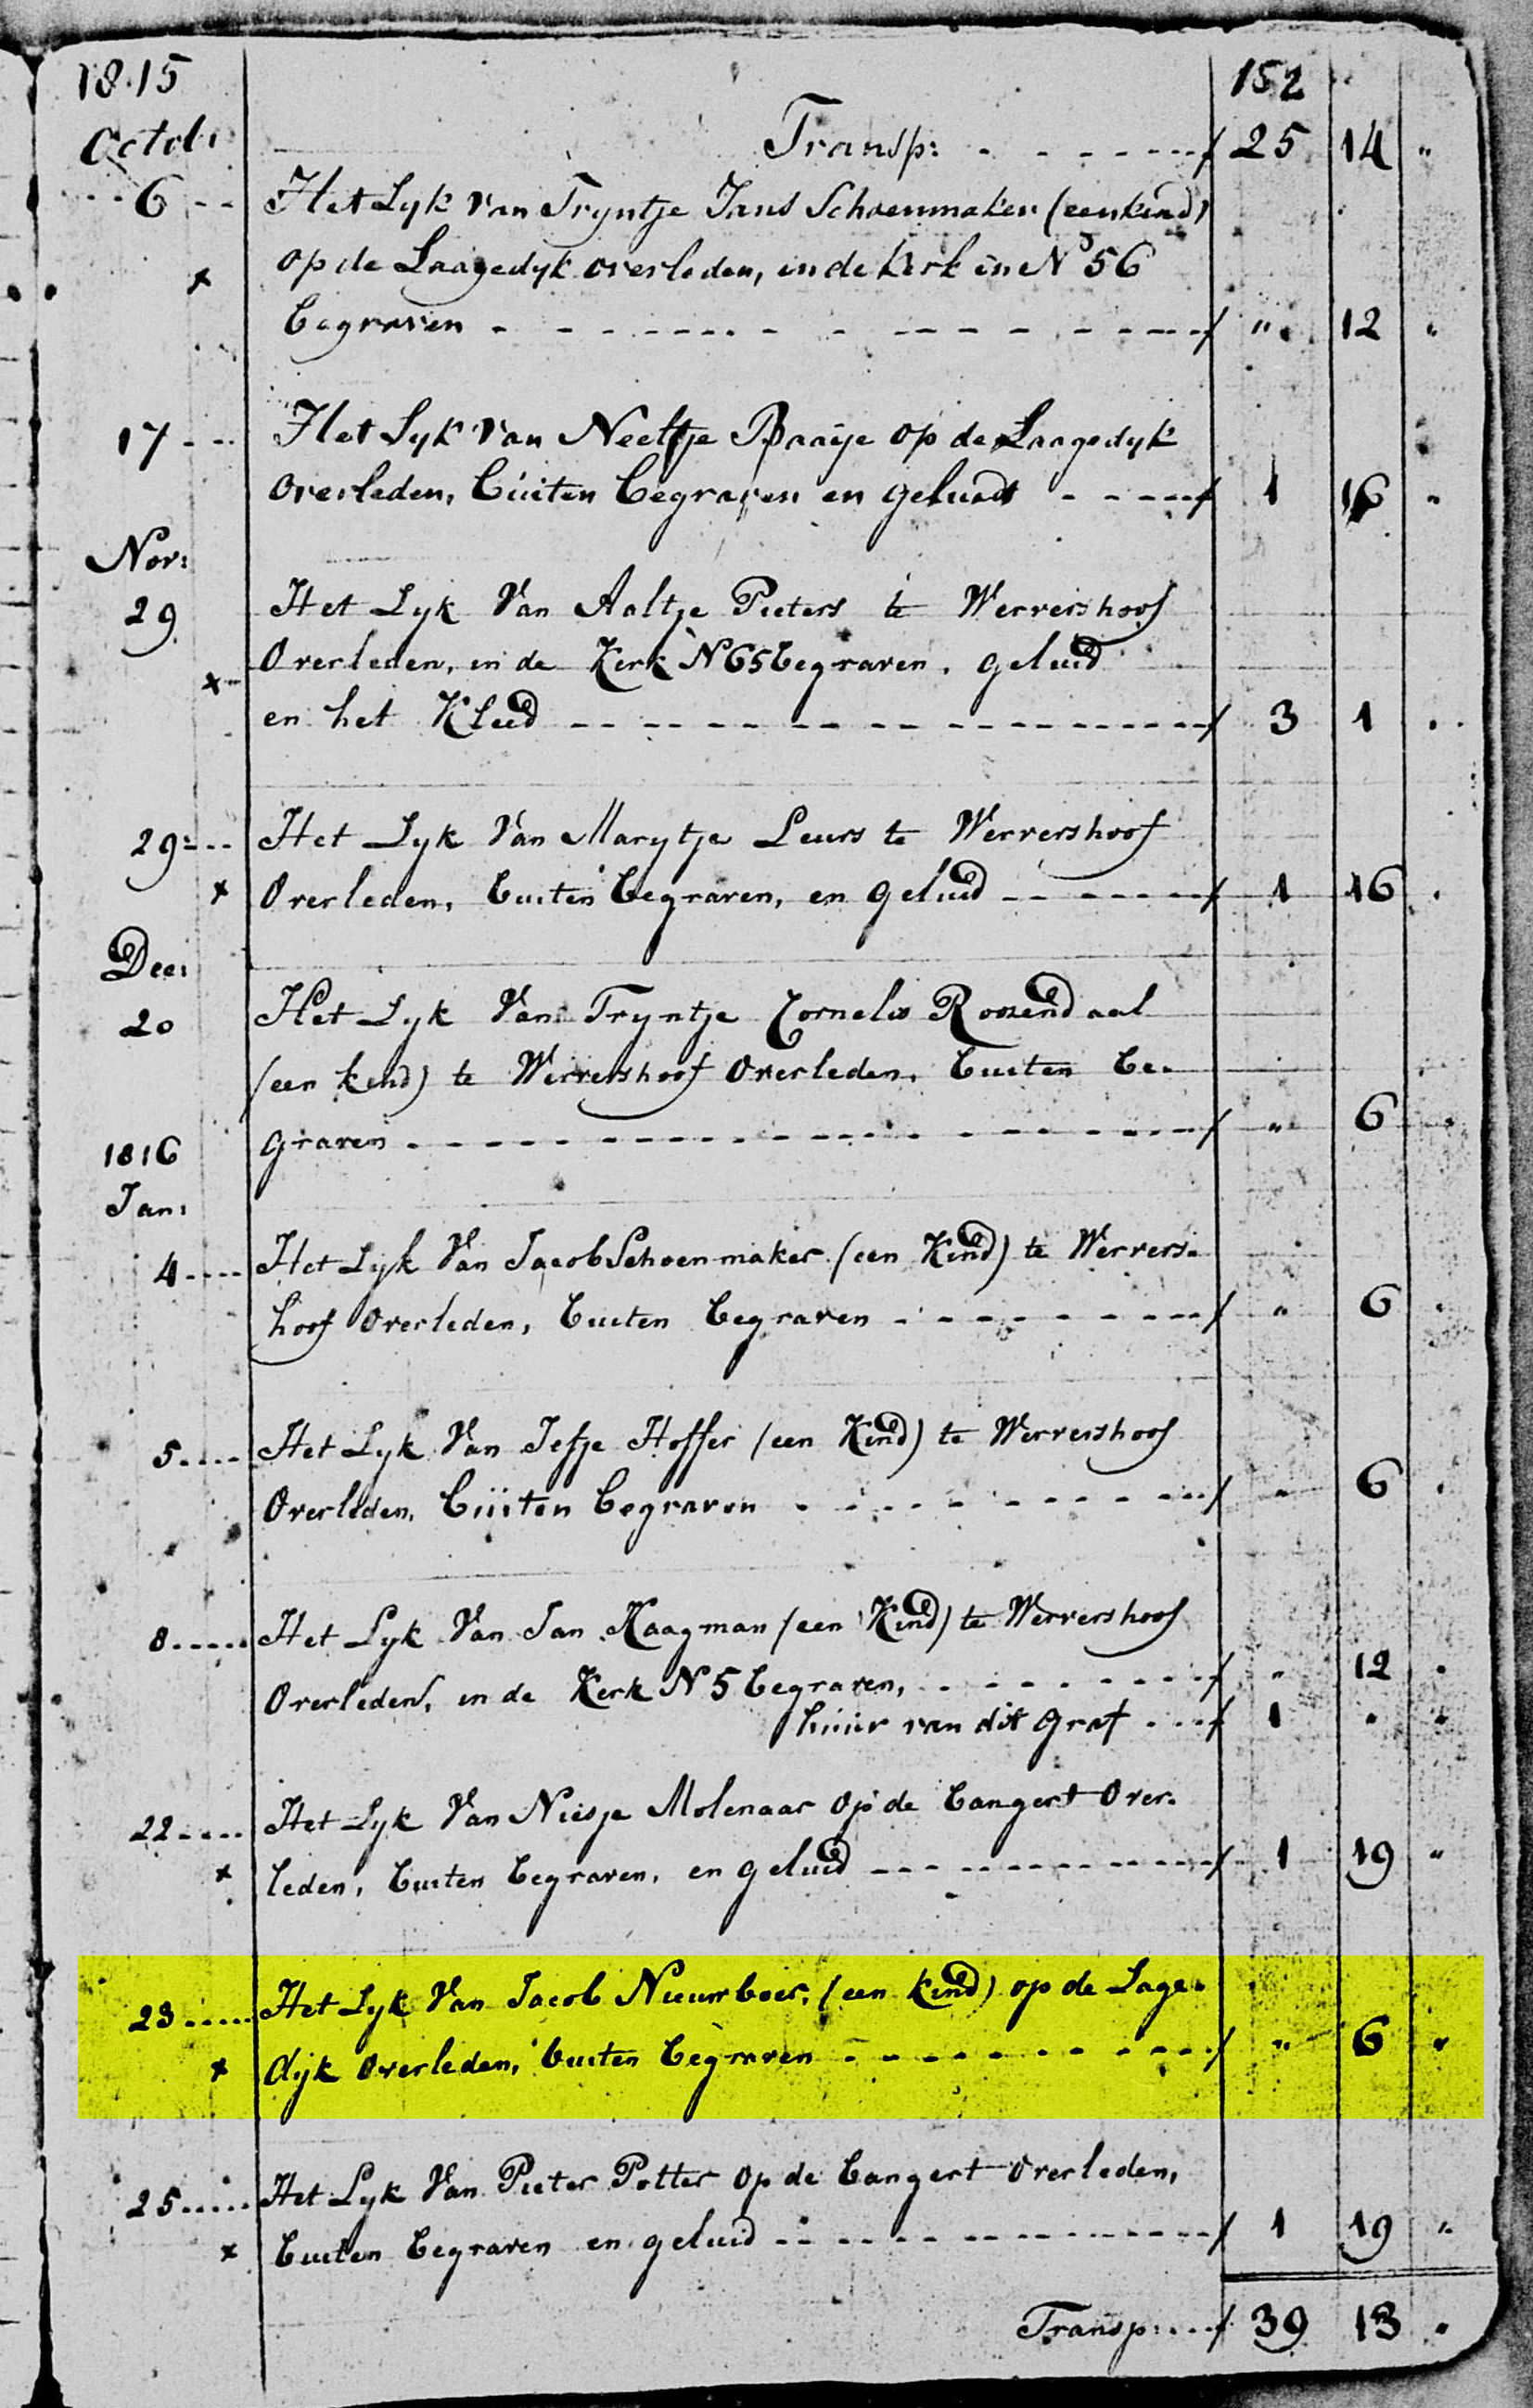 1815 152
Octob:
Transp: - - - - - - - ƒ 25 14 "
6 - - Het Lyk van Tryntje Jans Schoenmaker (een kind)
x op de Laagedyk overleden, in de kerk in N 56
begraven - - - - - - - - - - - - ƒ " 12 "
17 - - Het Lyk van Neeltje Baaije op de Laagedyk
overleden, buiten begraven en geluidt - - - - - ƒ 1 16 "
Nov:
29 Het Lyk Van Aaltje Pieters te Wervershoof
x Overleden, in de Kerk N 65 begraven, geluid
en het Kleed - - - - - - - - - - - - ƒ 3 1 "
29 - - Het Lyk Van Marytje Leurs te Wervershoof
x Overleden, buiten begraven, en geluid - - - - - - ƒ 1 16 "
Dec:
20 Het Lyk Van Tryntje Cornelis Rosendaal
(een kind) te Wervershoof Overleden, buiten be-
graven - - - - - - - - - - - - ƒ " 6 "
1816
Jan:
4 - - - - Het Lyk Van Jacob Schoenmaker (een Kind) te Wervers-
hoof Overleden, buiten begraven - - - - - - - - ƒ " 6 "
5 - - - - Het Lyk Van Jefje Hoffer (een Kind) te Wervershoof
Overleden, buiten begraven - - - - - - - - - ƒ " 6 "
8 - - - - - Het Lyk Van Jan Kaagman (een Kind) te Wervershoof
Overleden, in de Kerk N 5 begraven, - - - - - - - ƒ " 12 "
huur van dit graf - - - ƒ 1 " "
22 - - - - Het Lyk Van Niesje Molenaar op de bangert Over-
x leden, buiten begraven, en geluid - - - - - - - - - ƒ 1 19 "
23 - - - - - Het Lyk Van Jacob Nieuwboer, (een kind) op de Lage-
x dijk Overleden, buiten begraven - - - - - - - - - ƒ " 6 "
25 - - - - - Het Lyk Van Pieter Potter op de bangert Overleden,
x buiten begraven en geluid - - - - - - - - - - - ƒ 1 19 "
Transp: - - - ƒ 39 13 "